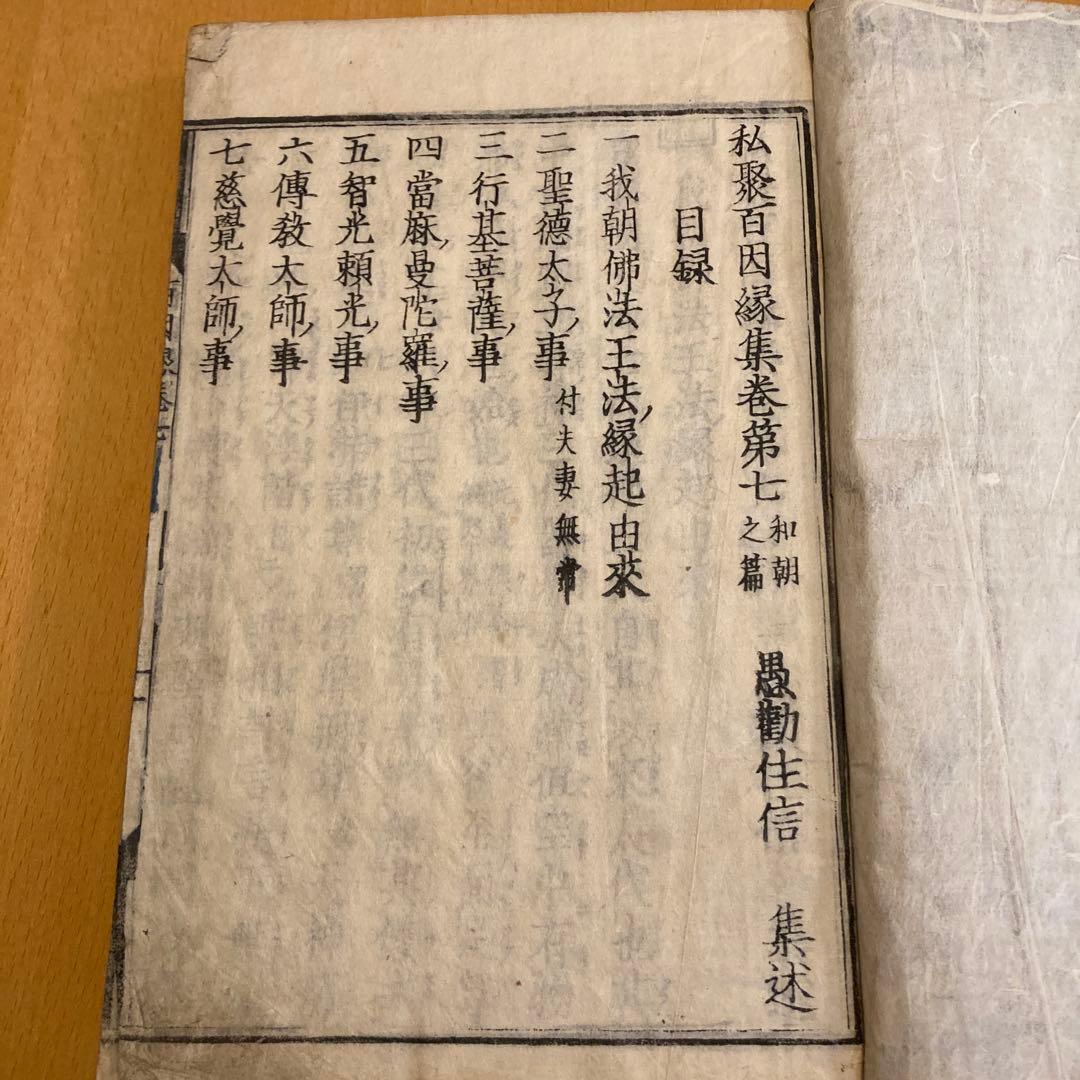 私聚百因縁集巻第七 和朝之篇 愚勸住信 集述
目録
一我朝佛法王法ノ縁起由來
二聖德太子ノ事 付夫妻無常
三行基菩薩ノ事
四當麻ノ曼陀羅ノ事
五智光頼光ノ事
六傳敎大師ノ事
七慈覺大師ノ事